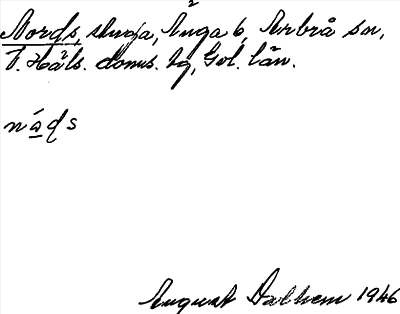 Nords, stuga, Änga 6, Arbrå sn,
V. Häls. doms. hg, Gvl. län.
nå̱ds
August Dalhem 1946